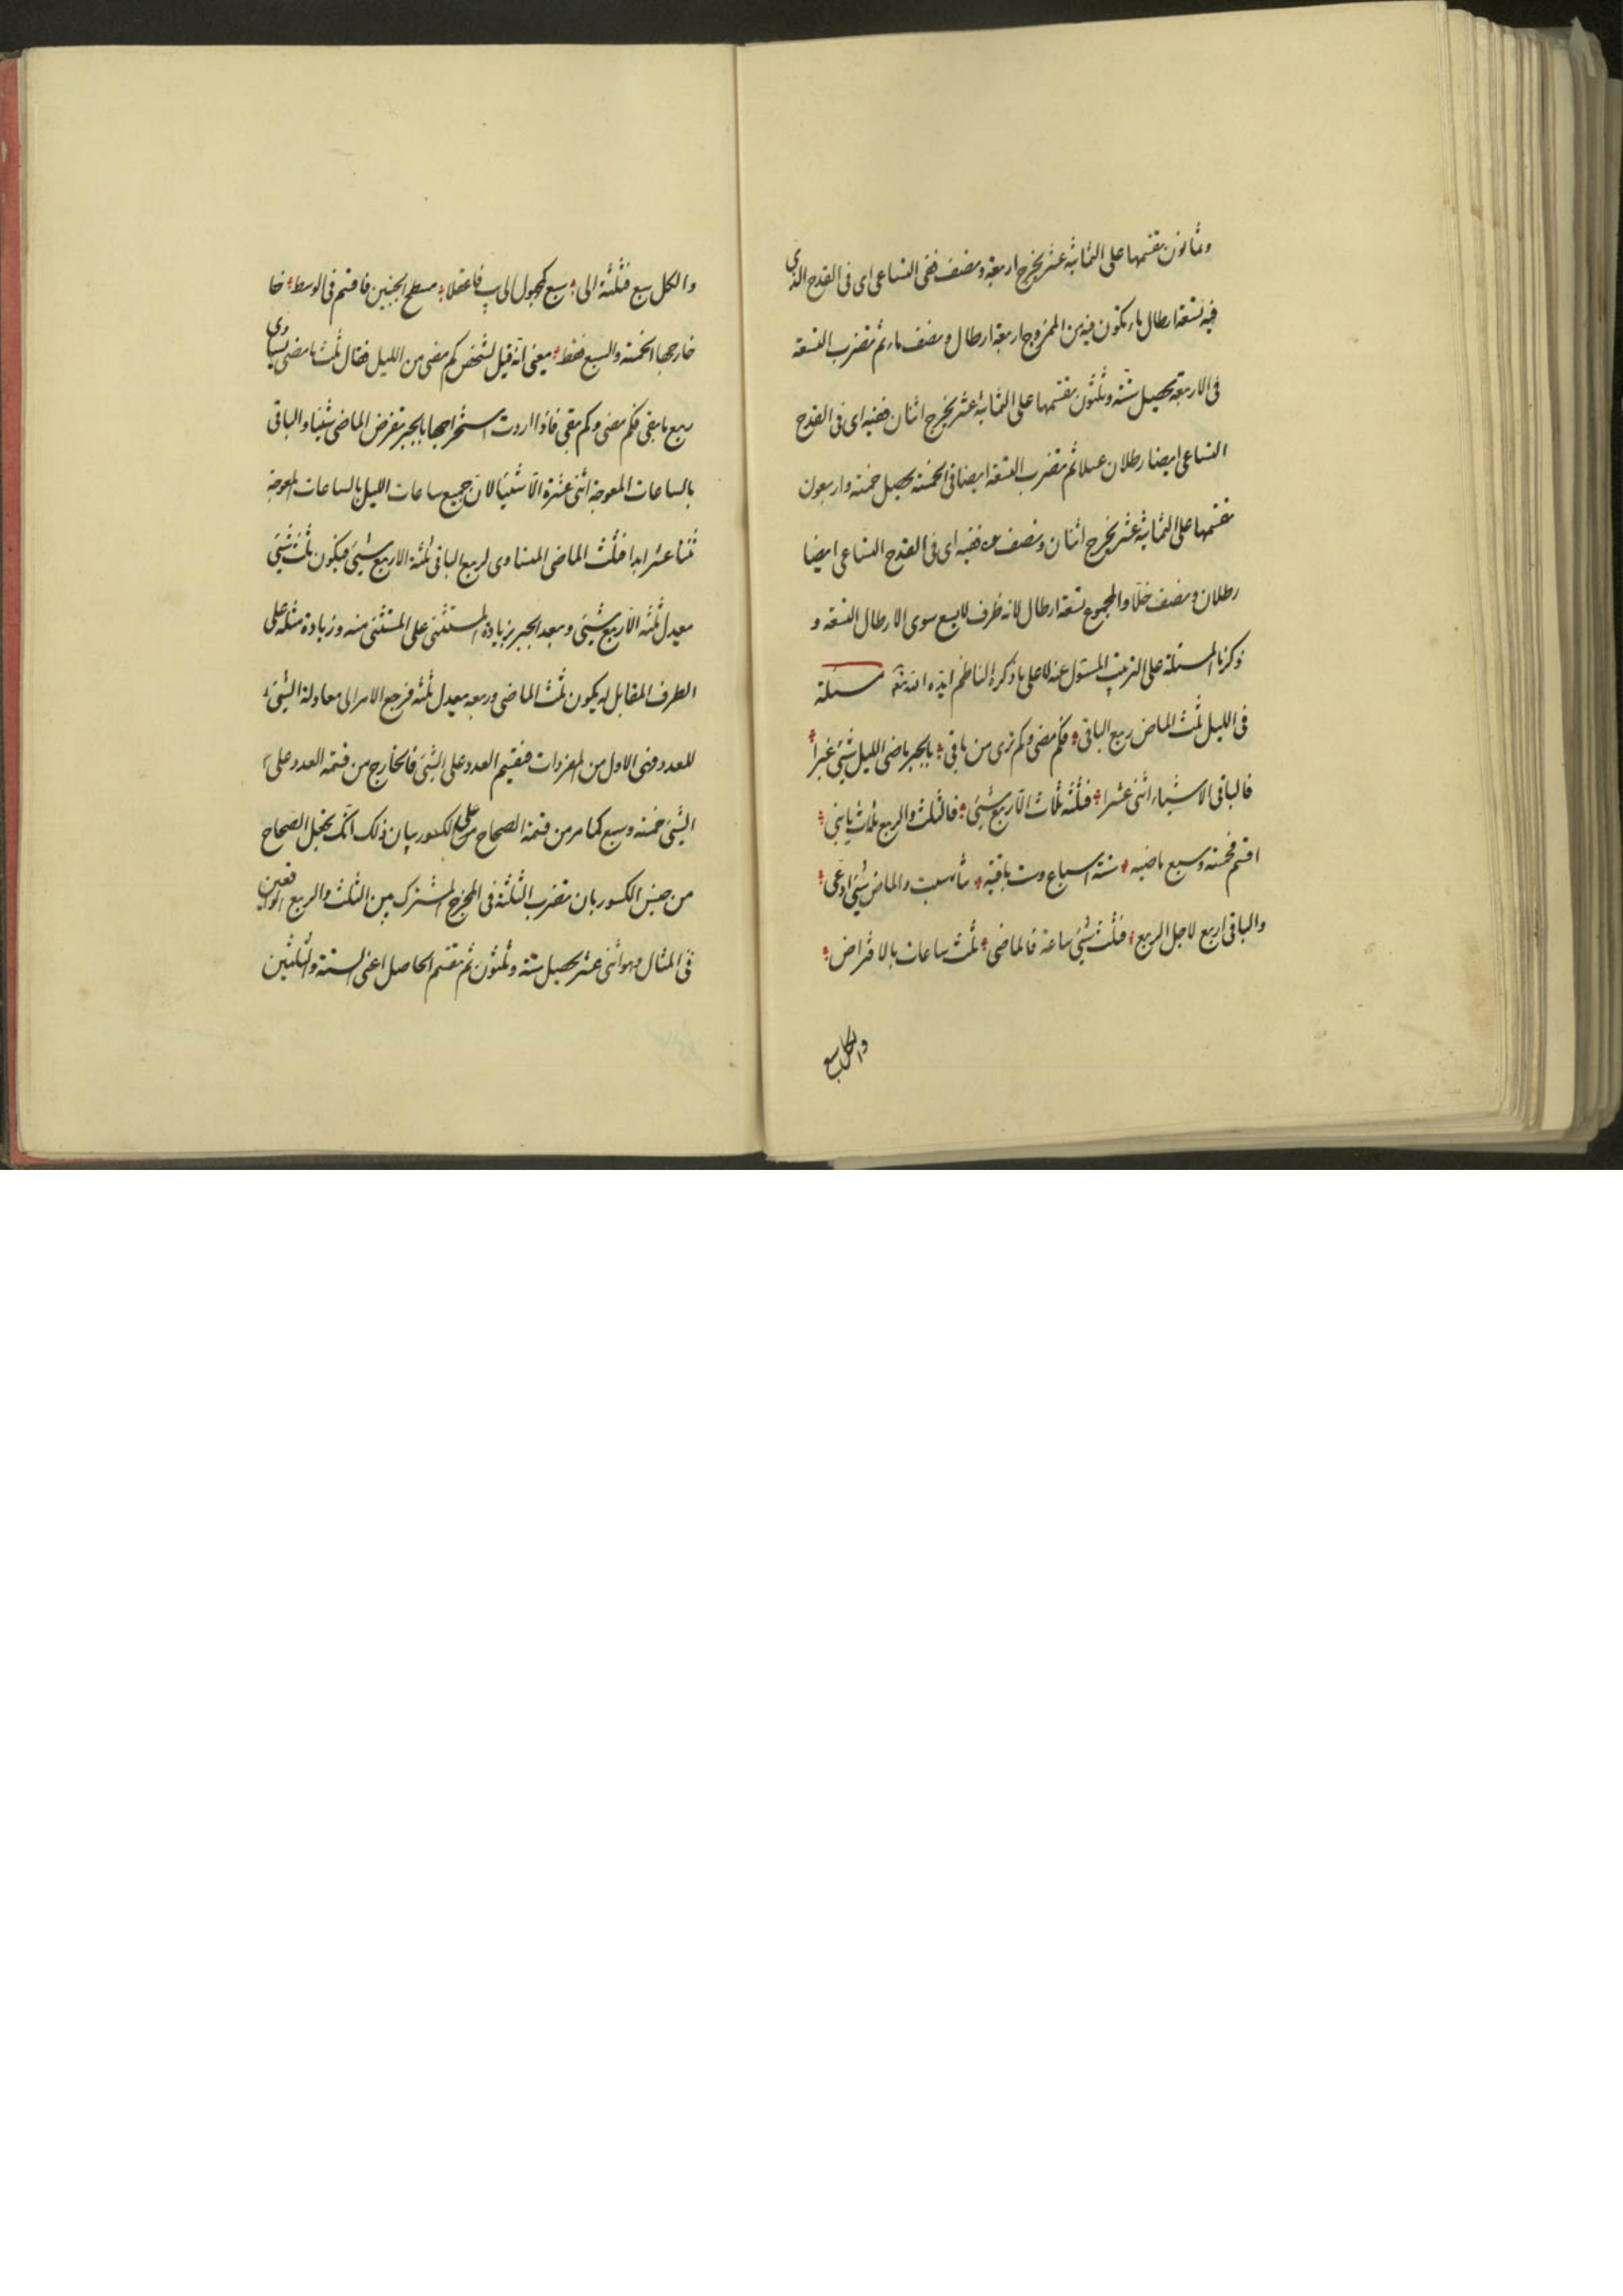 وثمانون نقسمها على الثمانية عشر يخرج اربعة ونصف ففى التساعى اى فى القدح الذى
فيه تسعة ارطال ماء يكون فيه من الممزوج اربعة ارطال ونصف ماء ثم نضرب التسعة
فى الاربعة يحصل ستة وثلثون نقسمها على الثمانية عشر يخرج اثنان ففيه اى فى القدح
التساعى ايضا رطلان عسلا ثم نضرب التسعة ايضا فى الخمسة يحصل خمسة واربعون
نقسمها على الثمانية عشر يخرج اثنان ونصف ففيه اى فى القدح التساعى ايضا
رطلان ونصف خلا والمجموع تسعة ارطال لانه ظرف لا يسع سوى الارطال التسعة و
ذكرنا المسئلة على الترتيب المسئول عنه لا على ما ذكره الناظم ايده الله تعالى مسئلة
فى الليل ثلث الماض ربع الباقى فكم مضى وكم ترى من باقى بالجبر ماضى الليل شيئ غبرا
فالباقى الاشياء اثنى عشرا فثلثه ثلاث الا ربع شيئ فالثلث والربع ثلاث يا بنى
اقسم فخمسة وسبع ماضيه ستة اسباع وست باقيه والماض شيئ ادعى
والباقى اربع لاجل الربع فثلث شيئ ساعة فالماضى ثلث ساعات بالافتراض
والكل سبع
والكل سبع فثلثة الى سبع كمجهول الى يب فاعقلا مسطح الجنبين فاقسم فى الوسط خا
خارجها الخمسة والسبع فقط يعنى انه قيل لشخص كم مضى من الليل فقال ثلث ما مضى يساوى
ربع ما بقى فكم مضى وكم بقى فاذا اردت استخراجها بالجبر نفرض الماضى شيئا والباقى
بالساعات المعوجة اثنى عشرة الا شيئا لان جميع ساعات الليل بالساعات المعوجة
ثنا عشر ابدا فثلث الماضى المساوى لربع الباقى ثلثة الا ربع شيئ فيكون ثلث شيئ
يعدل ثلثة الا ربع شيئ وبعد الجبر بزيادة المستثنى على المستثنى منه وزيادة مثله على
الطرف المقابل له يكون ثلث الماضى وربعه يعدل ثلثة فرجع الامر الى معادلة الشيئ
للعدد فهى الاول من المفردات فنقسم العدد على الشيئ فالخارج من قسمة العدد على
الشيئ خمسة وسبع كما مر من قسمة الصحاح على الكسور بيان ذلك انك تجعل الصحاح
من جنس الكسور بان تضرب الثلثة فى المخرج المشترك بين الثلث والربع الواقعين
فى المثال وهو اثنى عشر يحصل ستة وثلثون ثم نقسم الحاصل اعنى الستة والثلثين